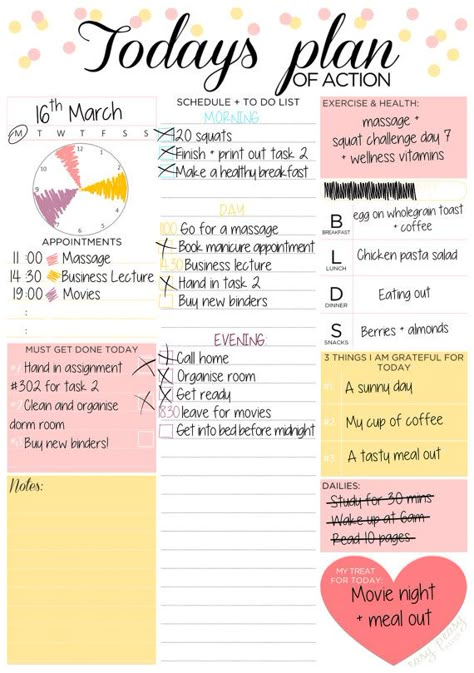 Todays plan
OF ACTION
16th March
M T W T F S S
12
3
6
9
APPOINTMENTS
11:00 Massage
14:30 Business Lecture
19:00 Movies
MUST GET DONE TODAY
#1 Hand in assignment
#302 for task 2
#2 Clean and organise
dorm room
#3 Buy new binders!
Notes:
SCHEDULE + TO DO LIST
MORNING
20 squats
Finish + print out task 2
Make a healthy breakfast
DAY
Go for a massage
Book manicure appointment
Business lecture
Hand in task 2
Buy new binders
EVENING:
Call home
Organise room
Get ready
830 leave for movies
Get into bed before midnight
EXERCISE & HEALTH:
massage +
squat challenge day 7
+ wellness vitamins
B
BREAKFAST
egg on wholegrain toast
+ coffee
L
LUNCH
Chicken pasta salad
D
DINNER
Eating out
S
SNACKS
Berries + almonds
3 THINGS I AM GRATEFUL FOR
TODAY
#1 A sunny day
#2 My cup of coffee
#3 A tasty meal out
DAILIES:
Study for 30 mins
Wake up at 6am
Read 10 pages
MY TREAT
FOR TODAY:
Movie night
+ meal out
easy peasy